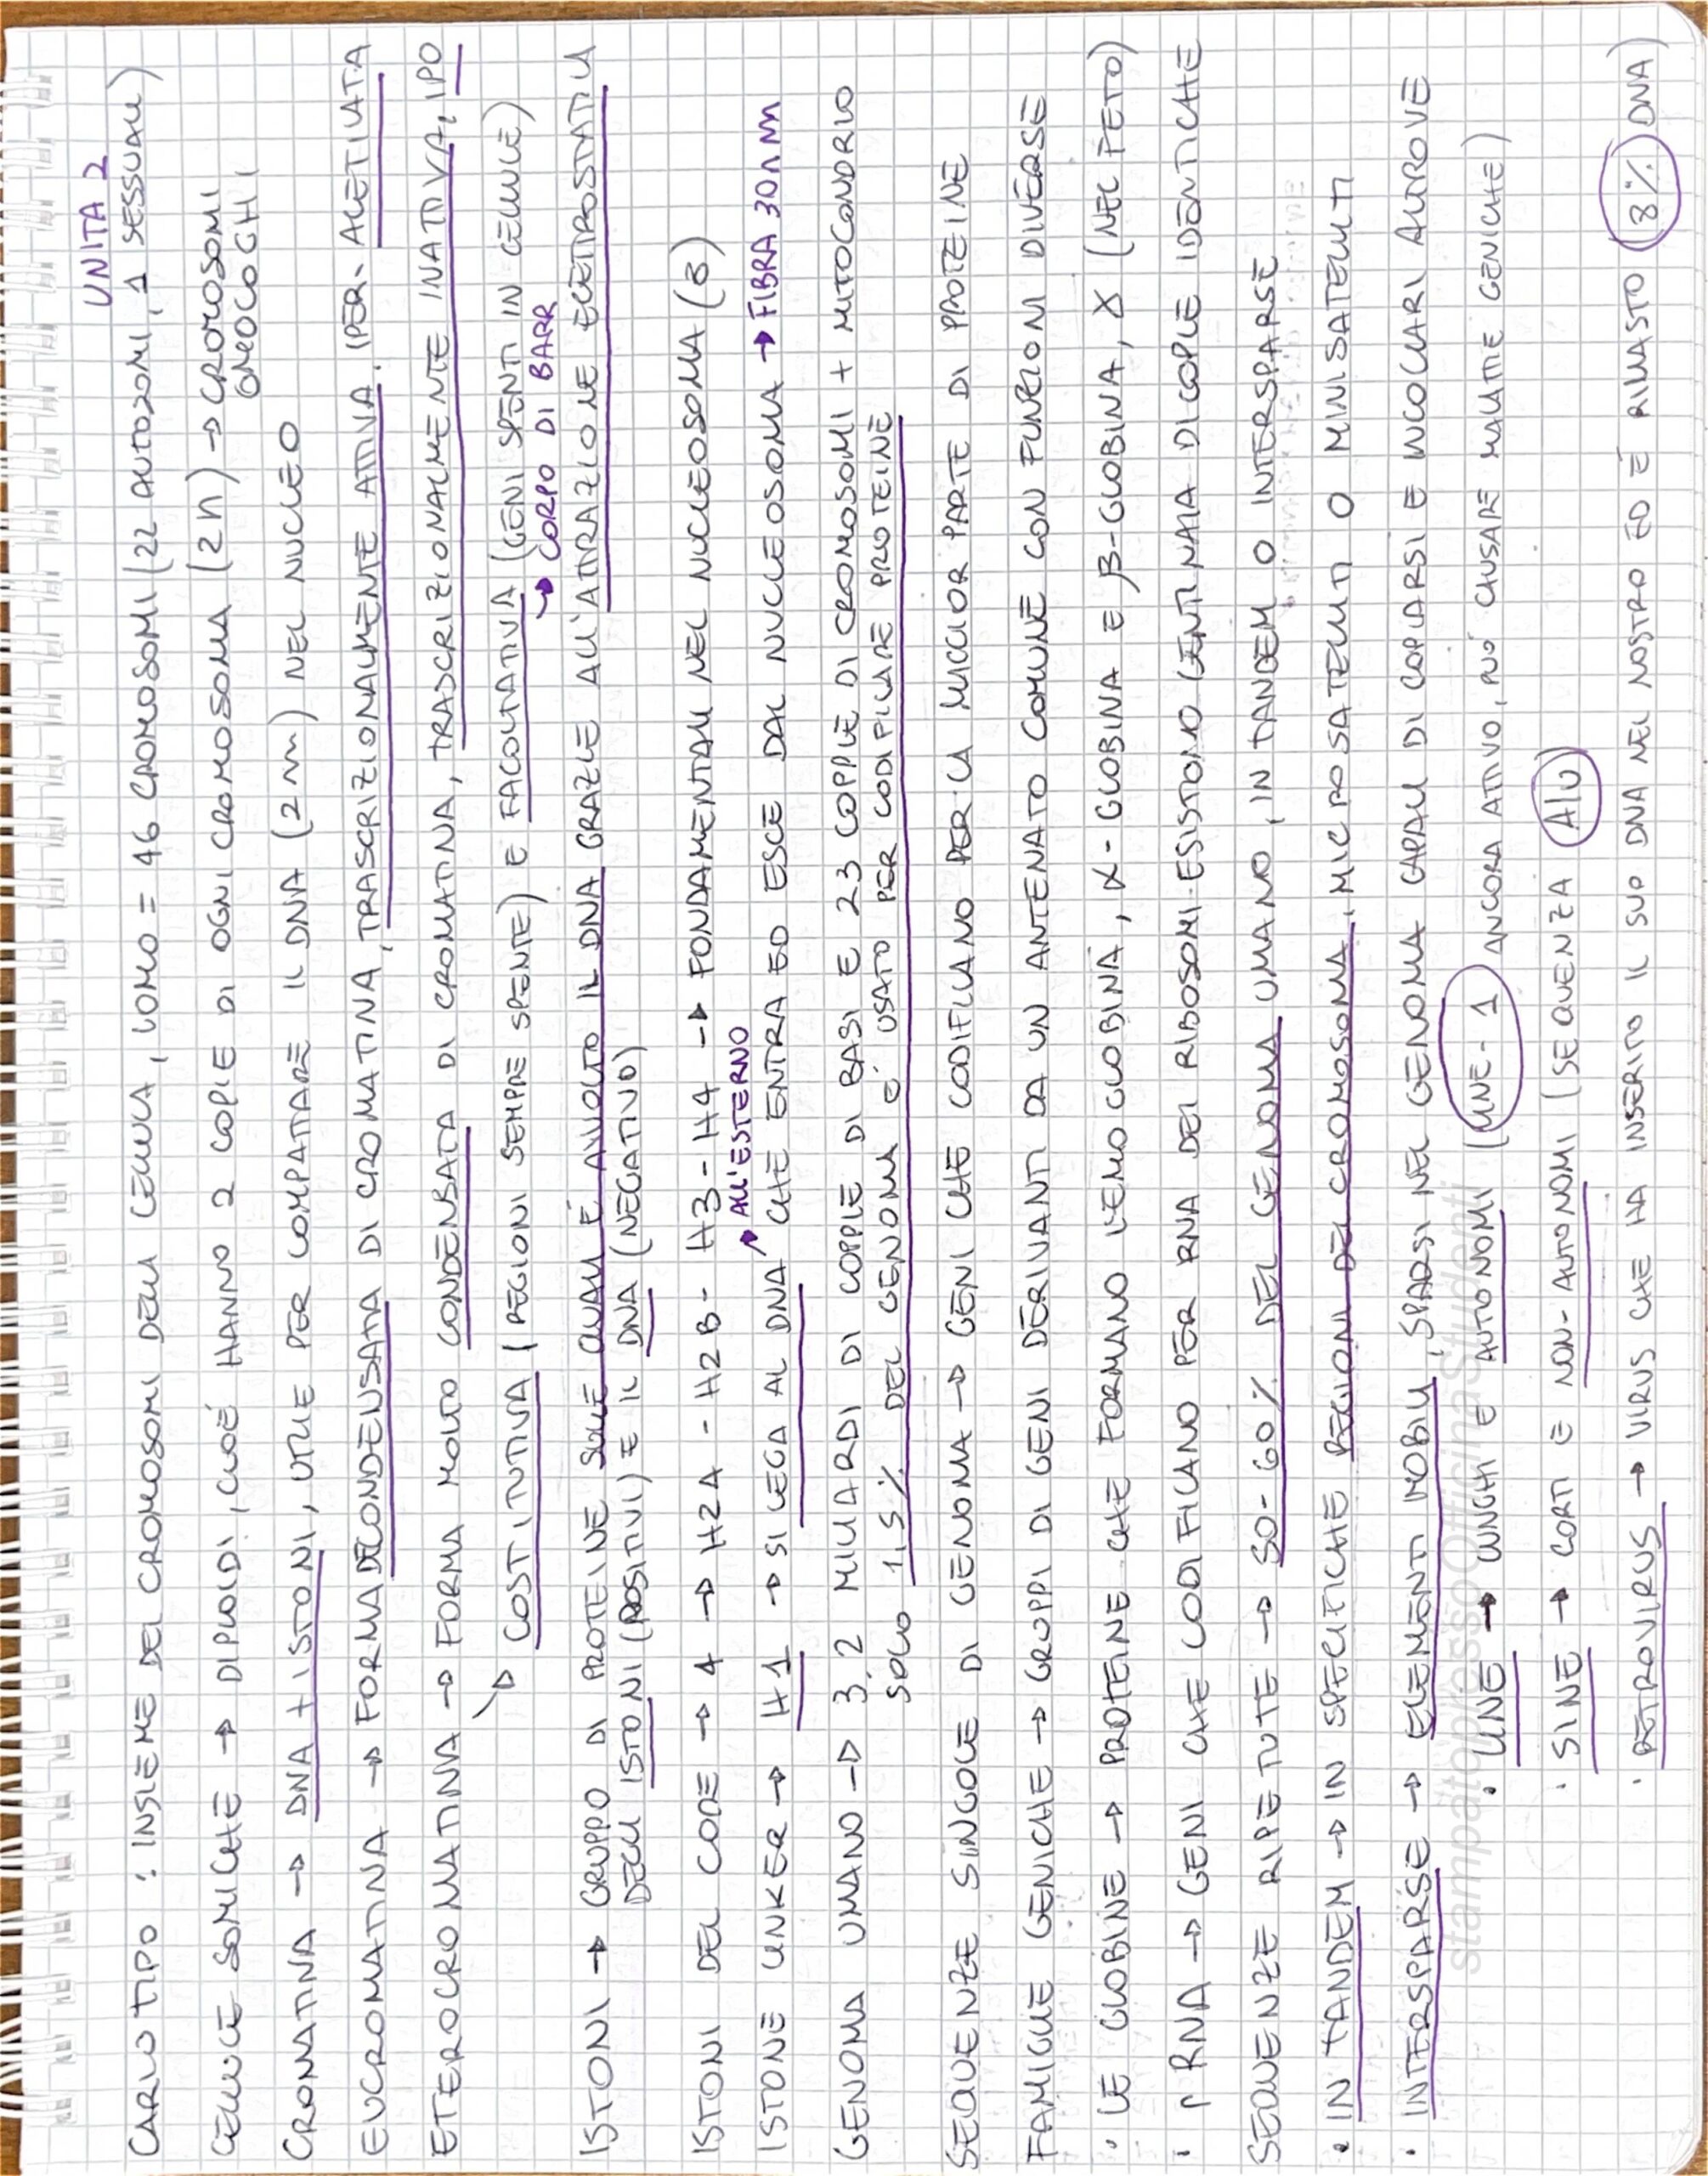 UNITA 2
CARIOTIPO : INSIEME DEI CROMOSOMI DELLA CELLULA, UOMO = 46 CROMOSOMI (22 AUTOSOMI, 1 SESSUALI)
CELLULE SOMICHE → DIPLOIDI, CIOÉ HANNO 2 COPIE DI OGNI CROMOSOMA (2n) → CROMOSOMI
OMOLOGHI
CROMATINA → DNA + ISTONI, UTILE PER COMPATTARE IL DNA (2m) NEL NUCLEO
EUCROMATINA → FORMA DECONDENSATA DI CROMATINA, TRASCRIZIONALMENTE ATTIVA. IPER-ACETILATA
ETEROCROMATINA → FORMA MOLTO CONDENSATA DI CROMATINA, TRASCRIZIONALMENTE INATTIVA, IPO
→ COSTITUTIVA (REGIONI SEMPRE SPENTE) E FACOLTATIVA (GENI SPENTI IN CELLULE)
→ CORPO DI BARR
ISTONI → GRUPPO DI PROTEINE SULLE QUALI É AVVOLTO IL DNA GRAZIE ALL'ATTRAZIONE ELETTROSTATICA
DEGLI ISTONI (POSITIVI) E IL DNA (NEGATIVO)
ISTONI DEL CORE → 4 → H2A - H2B - H3 - H4 → FONDAMENTALI NEL NUCLEOSOMA (8)
→ ALL'ESTERNO
ISTONE LINKER → H1 → SI LEGA AL DNA CHE ENTRA ED ESCE DAL NUCLEOSOMA → FIBRA 30nm
GENOMA UMANO → 3,2 MILIARDI DI COPPIE DI BASI E 23 COPPIE DI CROMOSOMI + MITOCONDRIO
SOLO 1,5% DEL GENOMA É USATO PER CODIFICARE PROTEINE
SEQUENZE SINGOLE DI GENOMA → GENI CHE CODIFICANO PER LA MAGGIOR PARTE DI PROTEINE
FAMIGLIE GENICHE → GRUPPI DI GENI DERIVANTI DA UN ANTENATO COMUNE CON FUNZIONI DIVERSE
· LE GLOBINE → PROTEINE CHE FORMANO L'EMOGLOBINA, α-GLOBINA E β-GLOBINA, γ (NEL FETO)
· rRNA → GENI CHE CODIFICANO PER RNA DEI RIBOSOMI. ESISTONO CENTINAIA DI COPIE IDENTICHE
SEQUENZE RIPETUTE → 50-60% DEL GENOMA UMANO, IN TANDEM O INTERSPARSE
· IN TANDEM → IN SPECIFICHE REGIONI DEL CROMOSOMA, MICROSATELLITI O MINISATELLITI
· INTERSPARSE → ELEMENTI MOBILI, SPARSI NEL GENOMA CAPACI DI COPIARSI E INCOLLARSI ALTROVE
· LINE → LUNGHI E AUTONOMI (LINE-1 ANCORA ATTIVO, PUÓ CAUSARE MALATTIE GENICHE)
· SINE → CORTI E NON-AUTONOMI (SEQUENZA Alu)
· RETROVIRUS → VIRUS CHE HA INSERITO IL SUO DNA NEL NOSTRO ED É RIMASTO (8% DNA)
stampatopressoOfficinaStudenti